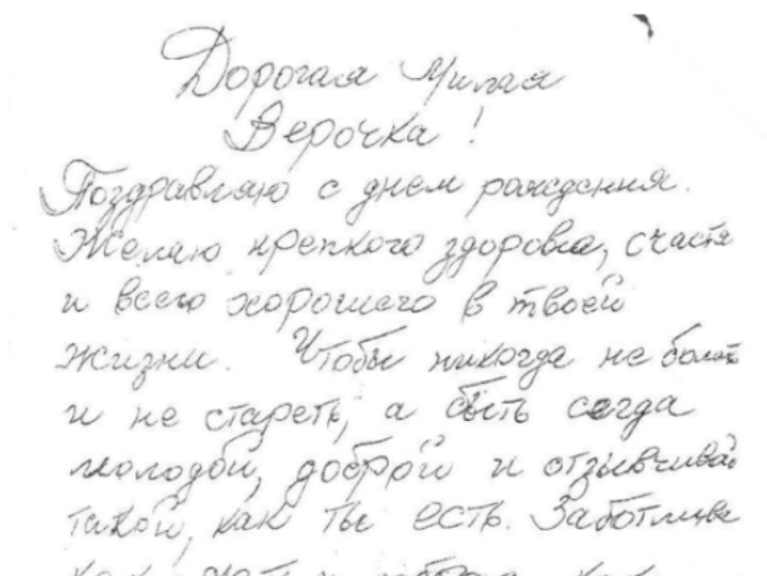 Дорогая милая
Верочка!
Поздравляю с днем рождения.
Желаю крепкого здоровья, счастя
и всего хорошего в твоей
жизни. Чтобы никогда не болеть
и не стареть, а быть всегда
молодой, доброй и отзывчивой
такой, как ты есть. Заботливая
как